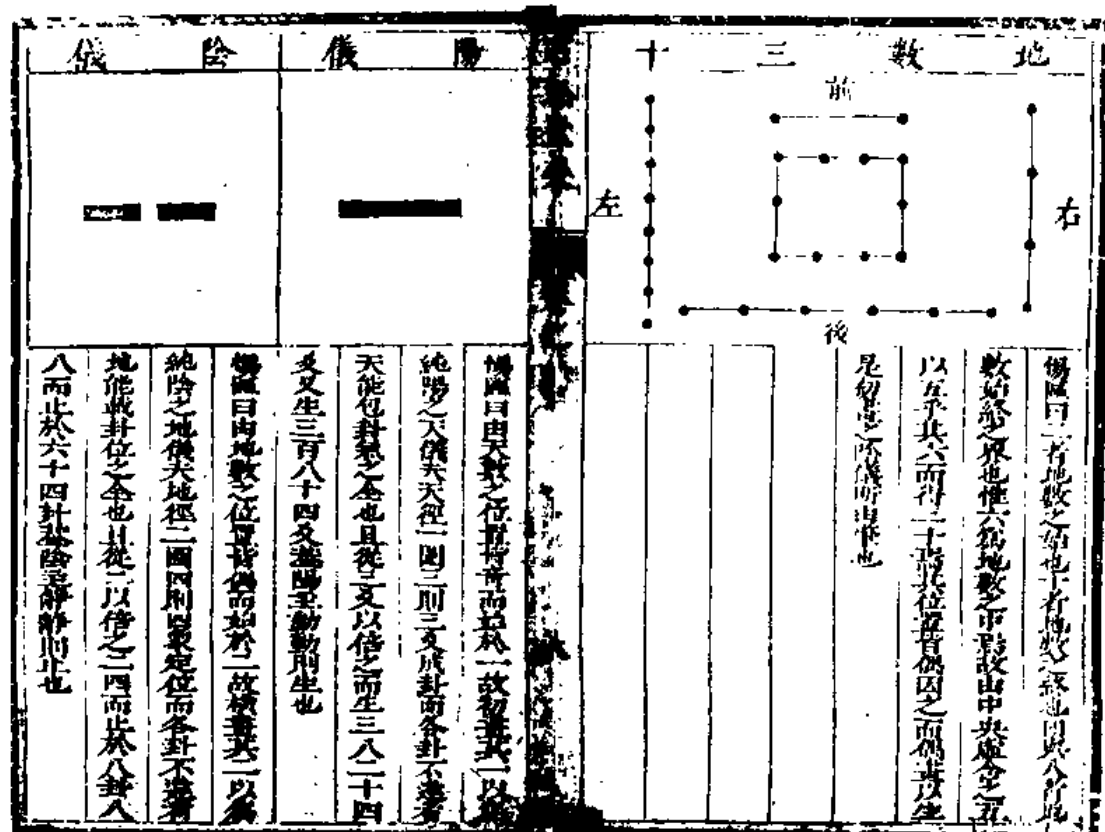 地數三十
前
右
左
後
曰二者地數之始也十者地數之終也四與八者地
數始終之界也惟六爲地數之中焉故由中央虛含之五
以五乘其六而得三十焉其位置皆偶因之而偶畫以生
是初畫之陰儀所由肇也
陽儀
陰儀
曰由天數之位置皆奇而起於一故初畫其一以爲
純陽之天儀夫天徑一圍三則三爻成卦而各卦不遺者
天能包卦氣之全也且從三爻以倍之而生三八二十四
爻又生三百八十四爻蓋陽至動動則生也
曰由地數之位置皆偶而起於二故橫畫其二以爲
純陰之地儀夫地徑二圍四則四象定位而各卦不遺者
地能載卦位之全也且從二以倍之二四而止於八卦八
八而止於六十四卦蓋陰至靜靜則止也